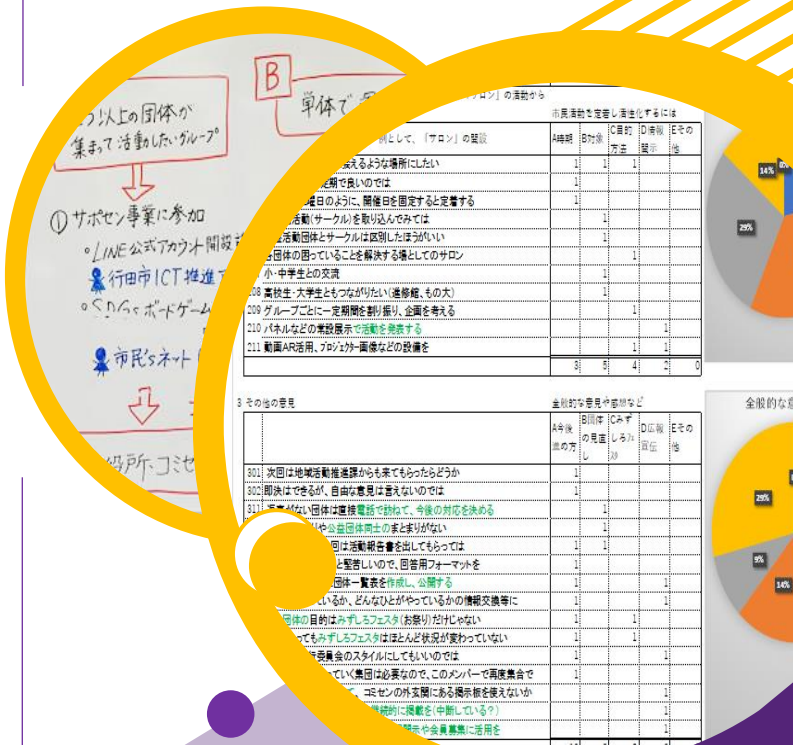 2つ以上の団体が
集まって活動したいグループ
B
単体で
① サポセン事業に参加
○LINE公式アカウント開設
行田市ICT推進
○SDGsボードゲーム
市民'sネット
役所・コミセ
サロン」の活動から
市民活動を定着し活性化するには
例として、「サロン」の開設
A時期 B対象 C目的方法 D情報開示 Eその他
えるような場所にしたい 1 1 1
定期で良いのでは 1
曜日のように、開催日を固定すると定着する 1
活動(サークル)を取り込んでみては 1
活動団体とサークルは区別したほうがいい 1
各団体の困っていることを解決する場としてのサロン 1
小・中学生との交流 1
208 高校生・大学生ともつながりたい(進修館、もの大) 1
209 グループごとに一定期間を割り振り、企画を考える 1
210 パネルなどの常設展示で活動を発表する 1
211 動画AR活用、プロジェクター画像などの設備を 1 1
3 5 4 2 0
14%
29%
3 その他の意見
全般的な意見や感想など
A今後の方 B団体の見直し Cみずしろフェスタ D広報宣伝 Eその他
301 次回は地域活動推進課からも来てもらったらどうか 1
302 即決はできるが、自由な意見は言えないのでは 1
311 がない団体は直接電話で訪ねて、今後の対応を決める 1
や公益団体同士のまとまりがない 1
回は活動報告書を出してもらっては 1 1
と堅苦しいので、回答用フォーマットを 1
団体一覧表を作成し、公開する 1 1
いるか、どんなひとがやっているかの情報交換等に 1 1
団体の目的はみずしろフェスタ(お祭り)だけじゃない 1 1
ってもみずしろフェスタはほとんど状況が変わっていない 1 1
委員会のスタイルにしてもいいのでは 1 1
っていく集団は必要なので、このメンバーで再度集合で 1
、コミセンの外玄関にある掲示板を使えないか 1
継続的に掲載を(中断している?) 1
開示や会員募集に活用を 1
全般的な意
29%
9%
14%